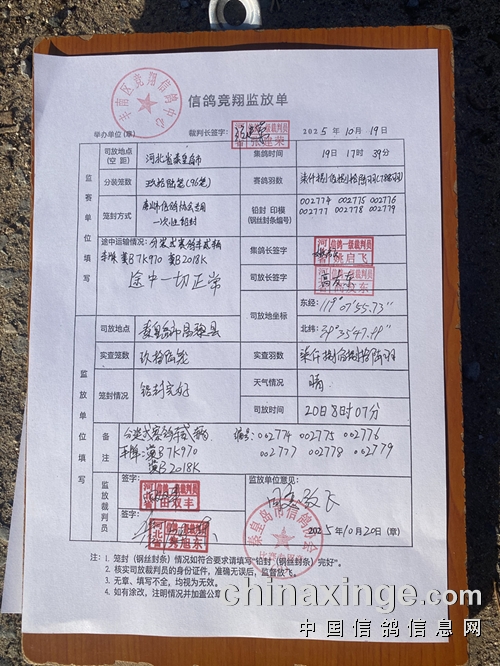 信鸽竞翔监放单
丰南区竞翔信鸽中心
举办单位(章)
裁判长签字:
2025年10月19日
监赛单位填写
司放地点(空距)
河北省秦皇岛市
集鸽时间
19日17时39分
分装笼数
玖拾陆笼(96笼)
赛鸽羽数
笼封方式
唐山市信鸽协会专用
一次性铅封
铅封 印模
(钢丝封条编号)
002774 002775 002776
002777 002778 002779
途中运输情况:
车牌 冀B7K970 冀B2018K
途中一切正常
集鸽长签字
河北省
信鸽一级裁判员
姚启飞
司放长签字
司放地点坐标
东经:119°07′55.73″
北纬:39°35′47.99″
监放单位填写
司放地点
秦皇岛市昌黎县
实查笼数
玖拾陆笼
实查羽数
笼封情况
铅封完好
天气情况
晴
司放时间
20日8时07分
备注
编号: 002774 002775 002776
002777 002778 002779
车牌:冀B7K970
冀B2018K
监放裁判员
签字:
信鸽一级裁判员
田双丰
签字:
河北省
监放单位意见:
同意放飞
秦皇岛市信鸽协会
2025年10月20日(章)
注:1. 笼封(钢丝封条)情况如符合要求请填写“铅封(钢丝封条)完好”。
2. 核实司放裁判员的身份证件,准确无误后,监督放飞。
3. 无章、填写不全,均视为无效。
4. 如有涂改,注明情况并加盖公章
chinaxinge.com
中国信鸽信息网